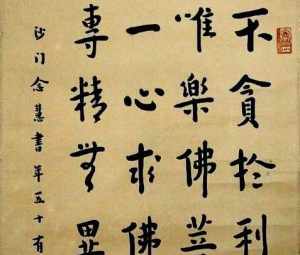 不貪於利
唯樂佛菩
一心求佛
專精無異
沙门念慧書年五十有